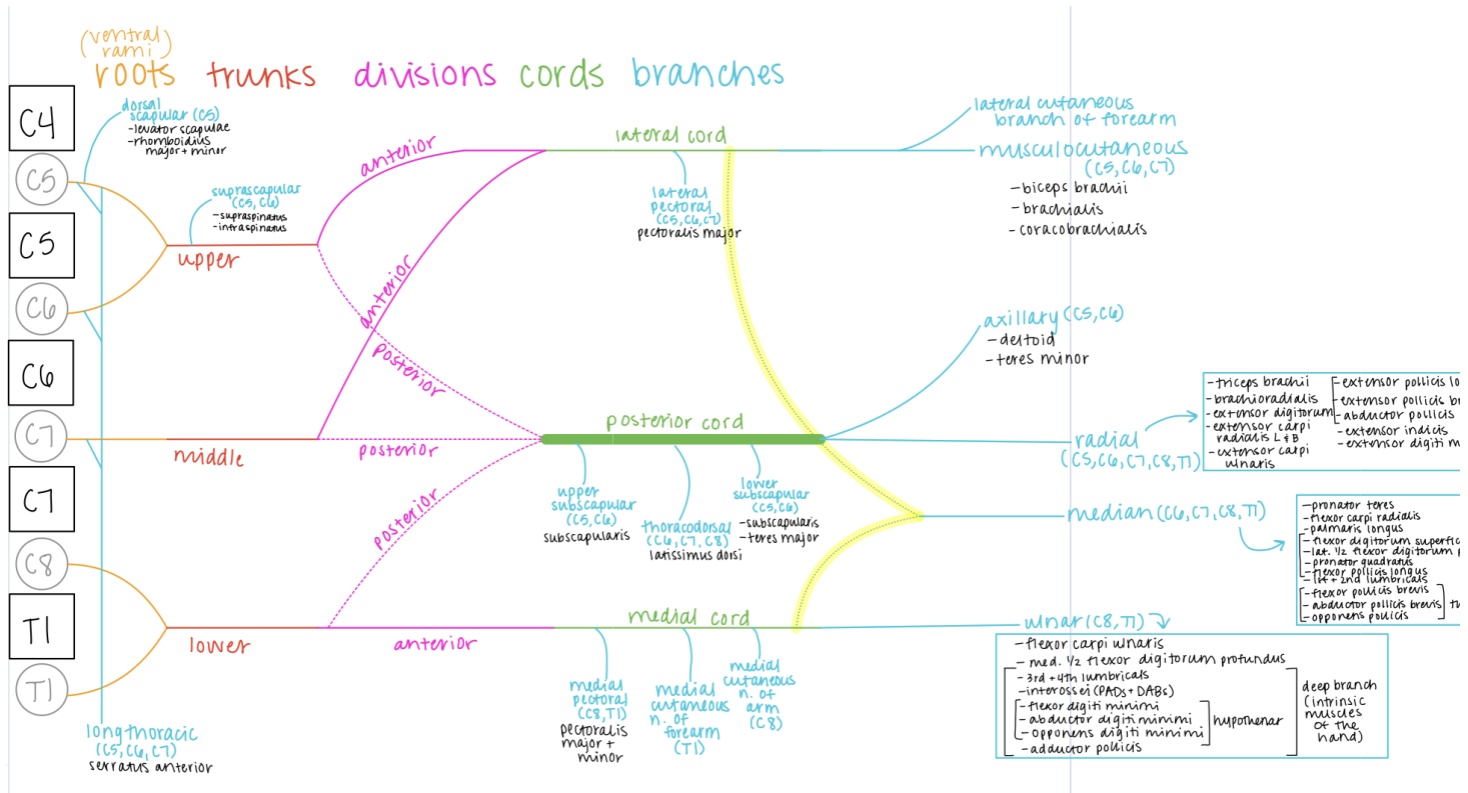 (ventral
rami)
roots trunks divisions cords branches
C4
C5
C5
C6
C6
C7
C7
C8
T1
T1
dorsal
scapular (C5)
-levator scapulae
-rhomboidius
major + minor
suprascapular
(C5, C6)
-supraspinatus
-infraspinatus
upper
middle
lower
long thoracic
(C5, C6, C7)
serratus anterior
anterior
anterior
posterior
posterior
posterior
anterior
lateral cord
lateral
pectoral
(C5, C6, C7)
pectoralis major
posterior cord
upper
subscapular
(C5, C6)
subscapularis
thoracodorsal
(C6, C7, C8)
latissimus dorsi
lower
subscapular
(C5, C6)
-subscapularis
-teres major
medial cord
medial
pectoral
(C8, T1)
pectoralis
major +
minor
medial
cutaneous
n. of
forearm
(T1)
medial
cutaneous
n. of
arm
(C8)
lateral cutaneous
branch of forearm
musculocutaneous
(C5, C6, C7)
-biceps brachii
-brachialis
-coracobrachialis
axillary (C5, C6)
-deltoid
-teres minor
radial
(C5, C6, C7, C8, T1)
-triceps brachii
-brachioradialis
-extensor digitorum
-extensor carpi
radialis L + B
-extensor carpi
ulnaris
-extensor pollicis lo
-extensor pollicis br
-abductor pollicis
-extensor indicis
-extensor digiti m
median (C6, C7, C8, T1)
-pronator teres
-flexor carpi radialis
-palmaris longus
-flexor digitorum superfic
-lat. 1/2 flexor digitorum p
-pronator quadratus
-flexor pollicis longus
-1st + 2nd lumbricals
-flexor pollicis brevis
-abductor pollicis brevis
-opponens pollicis
ulnar (C8, T1)
-flexor carpi ulnaris
-med. 1/2 flexor digitorum profundus
-3rd + 4th lumbricals
-interossei (PADs + DABs)
-flexor digiti minimi
-abductor digiti minimi
-opponens digiti minimi
-adductor pollicis
hypothenar
deep branch
(intrinsic
muscles
of the
hand)